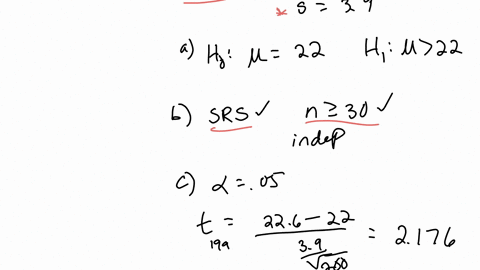 * s = 3.9
a) H₀: μ = 22 H₁: μ > 22
b) SRS ✓ n ≥ 30 ✓
indep
c) α = .05
t₁₉₉ = (22.6 − 22) / (3.9/√200) = 2.176